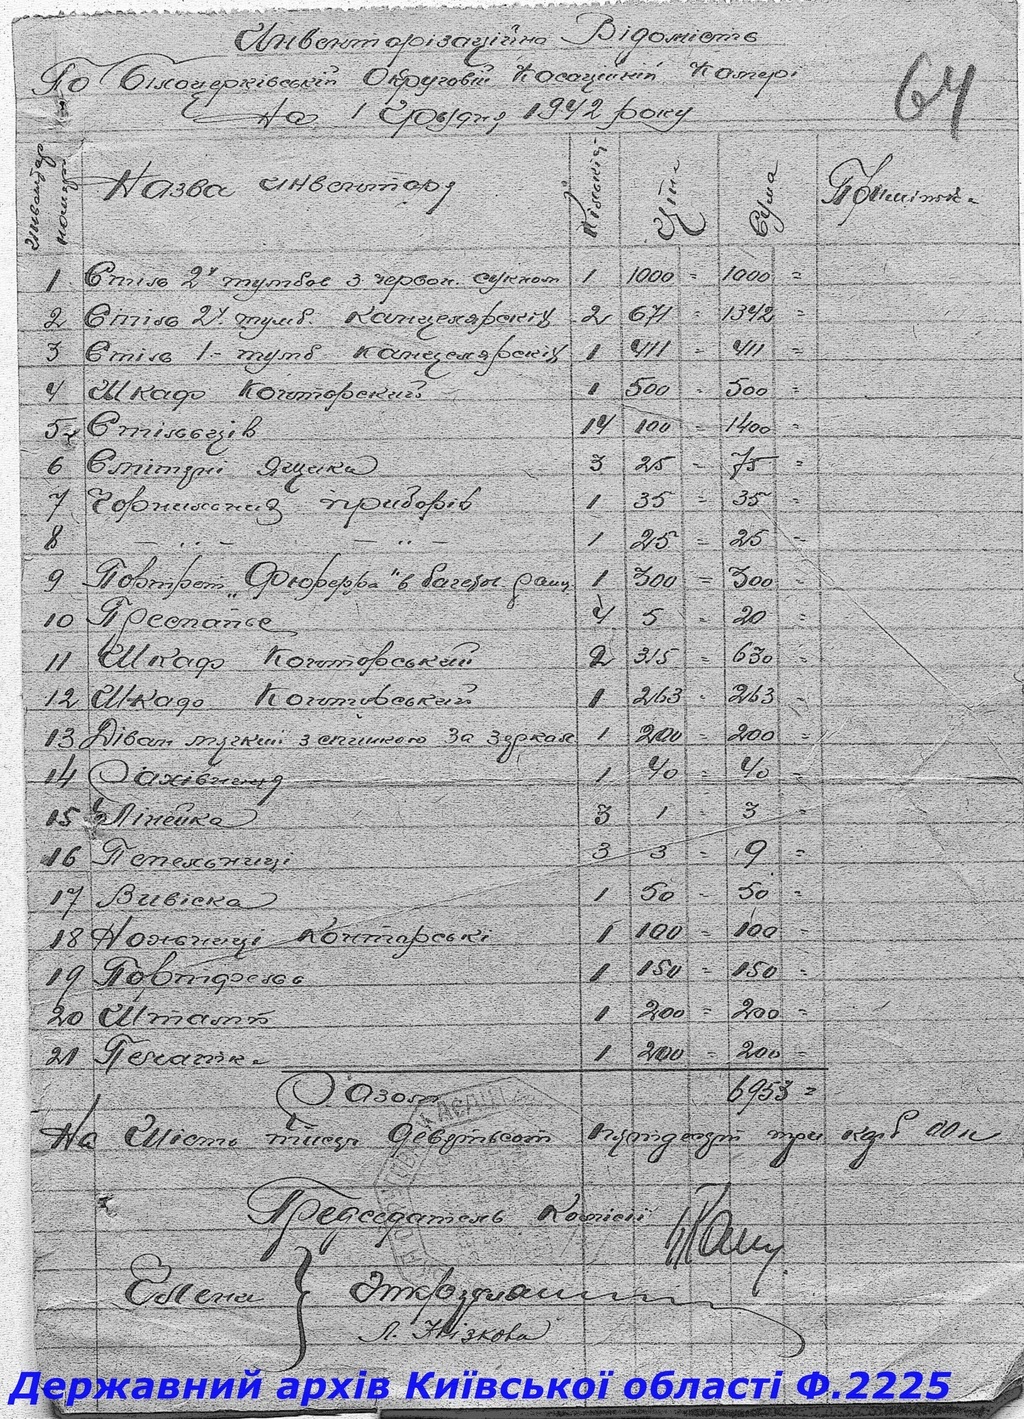 Инвенторізаційна Відомість
По Білоцерківській Округовій Касаційній Камері
На 1 Грудня 1942 року
64
Инвентар номер | Назва инвентору | Кількість | Ціна | Сума | Примітка
1 Стіль 2х тумбов з червон. сукном 1 1000 = 1000 =
2 Стіль 2х тумб. Канцелярскій 2 671 = 1342 =
3 Стіль 1-тумб. Канцелярскій 1 411 = 411 =
4 Шкаф Конторский 1 500 = 500 =
5 Стільців 14 100 = 1400 =
6 Смітні Ящика 3 25 = 75 =
7 Чорнильний приборів 1 35 = 35 =
8 — ,, — — ,, — 1 25 = 25 =
9 Портрет „Фюрерра" в багетов. рами 1 300 = 300 =
10 Преспапье 4 5 = 20 =
11 Шкаф Конторський 2 315 = 630 =
12 Шкаф Конторський 1 263 = 263 =
13 Діван мягкий з спинкою За Зеркал 1 200 = 200 =
14 Рахівниця 1 40 = 40 =
15 Лінейка 3 1 = 3 =
16 Пепельниці 3 3 = 9 =
17 Вивіска 1 50 = 50 =
18 Ножьниці Конторські 1 100 = 100 =
19 Портфель 1 150 = 150 =
20 Штамп 1 200 = 200 =
21 Печатка 1 200 = 200 =
Разом 6953 =
На Шість тисяч девятьсот пятдесят три карб 00 к
Председатель Комісії
Члена }
Л. Нізкова
Державний архів Київської області Ф.2225